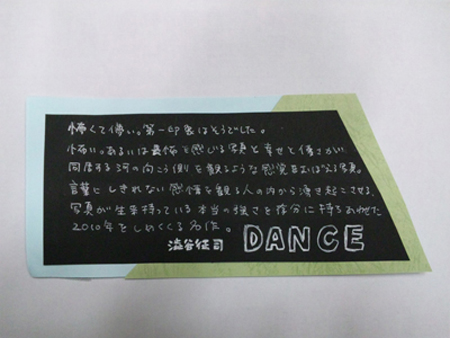 怖くて儚い。第一印象はそうでした。
怖い。あるいは畏怖を感じる写真と幸せと儚さが、
同居する河の向こう側を観るような感覚をおぼえる写真。
言葉にしきれない感情を観る人の内から湧き起こさせる、
写真が生来持っている本当の強さを存分に持ちあわせた
2010年をしめくくる名作。
澁谷征司 DANCE